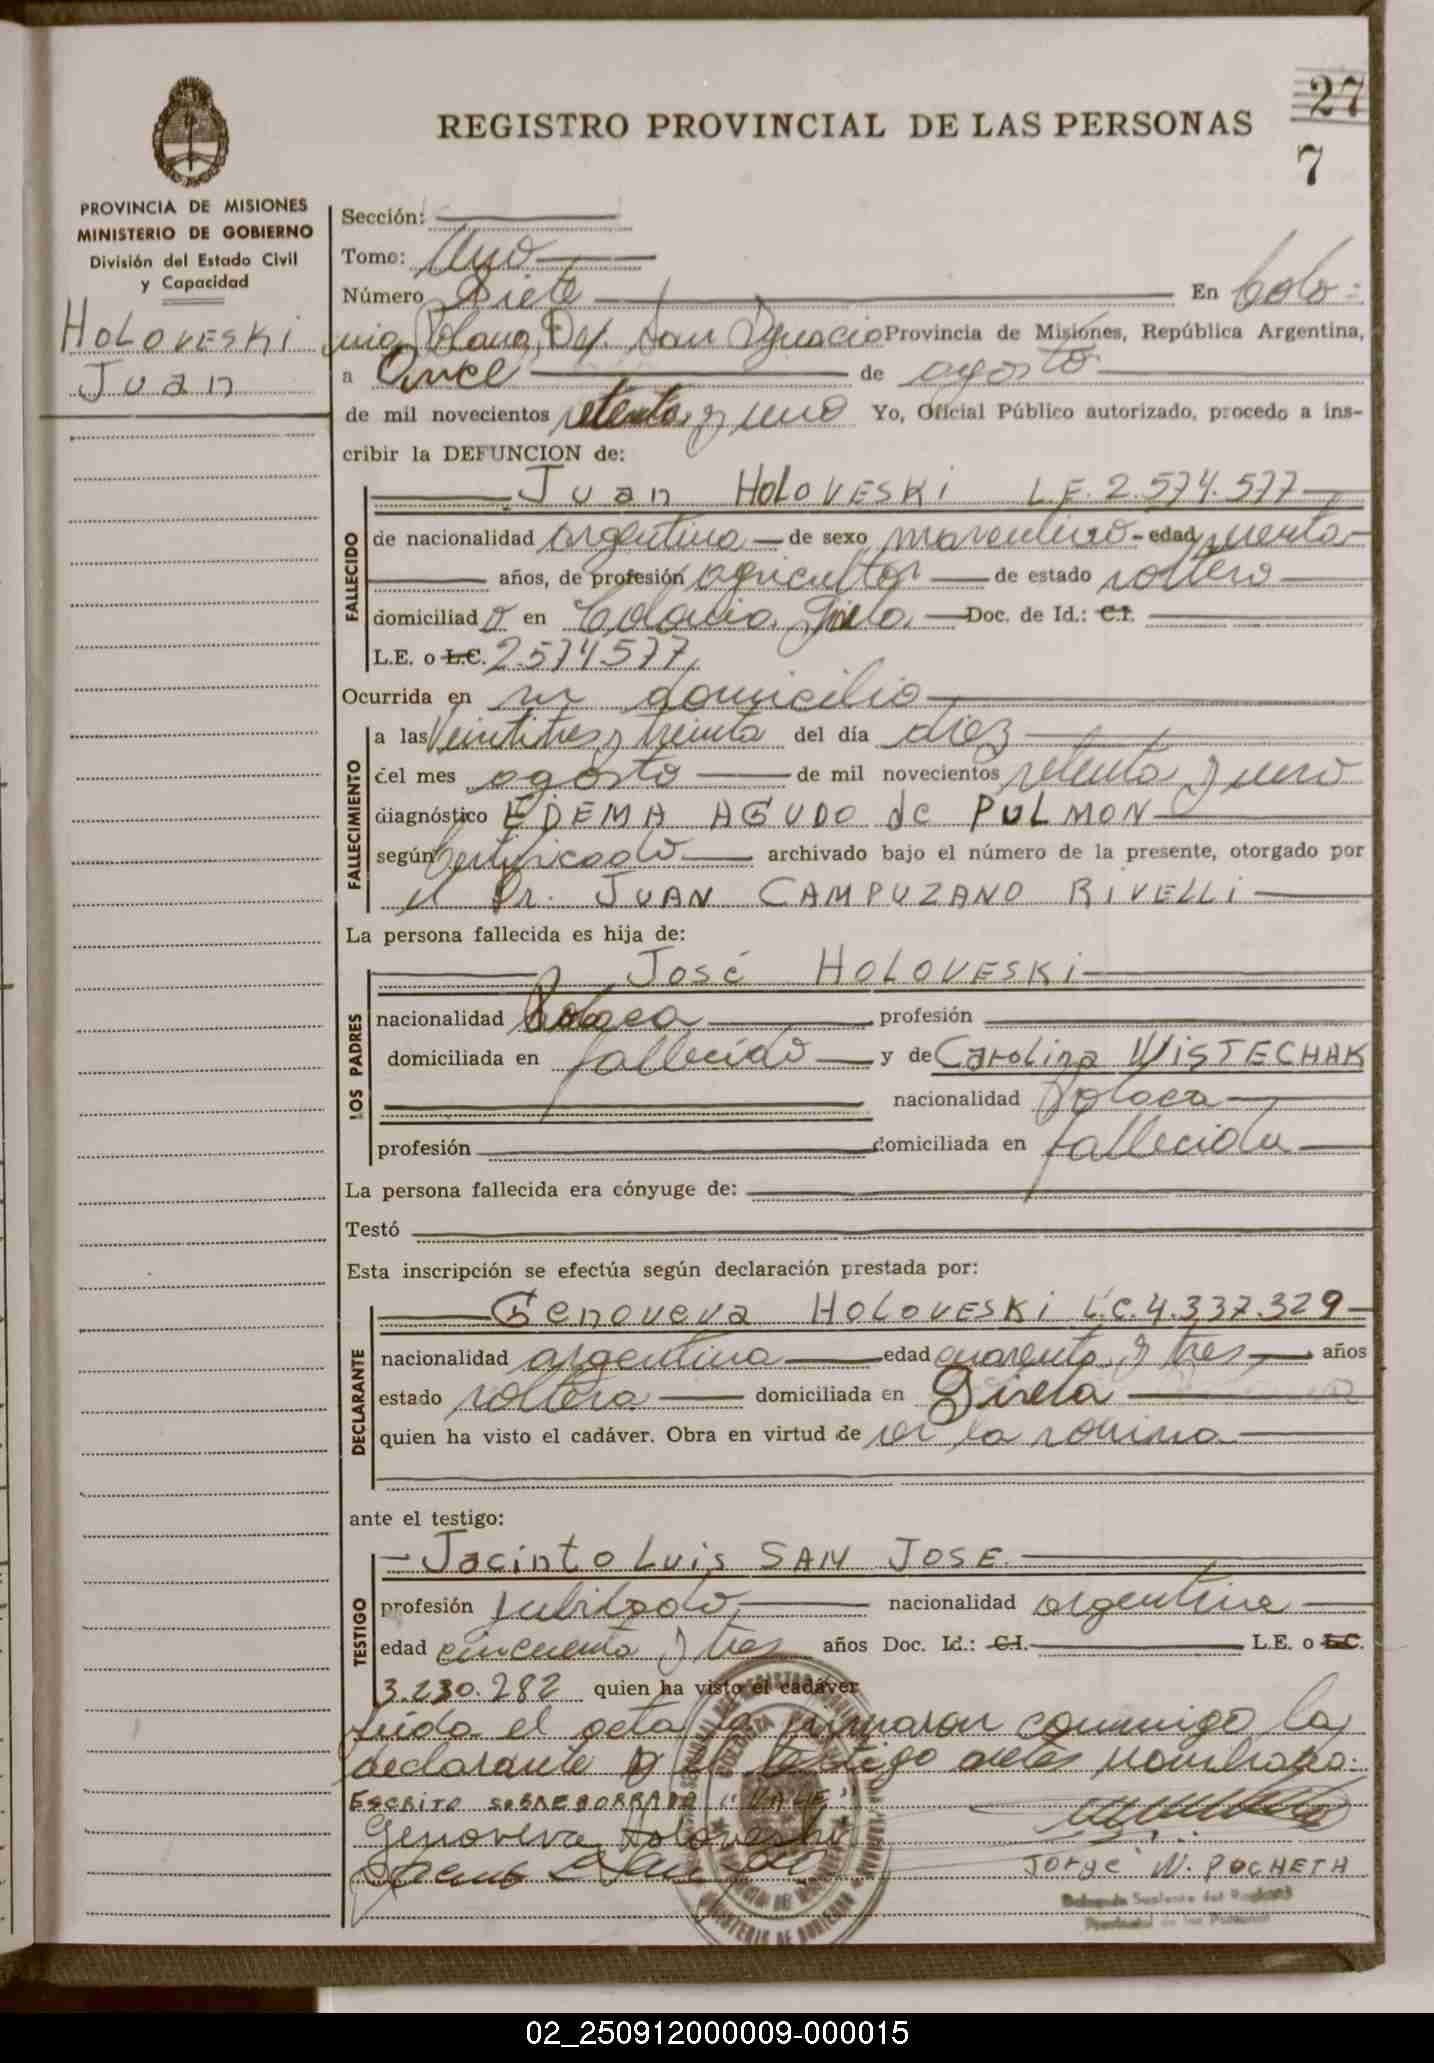 27
REGISTRO PROVINCIAL DE LAS PERSONAS
7
PROVINCIA DE MISIONES
MINISTERIO DE GOBIERNO
División del Estado Civil
y Capacidad
HOLOVESKI
Juan
Sección:
Tomo: Uno
Número Siete En Colo=
nia Polana, Dep. San Ignacio Provincia de Misiones, República Argentina,
a Once de agosto
de mil novecientos setenta y uno Yo, Oficial Público autorizado, procedo a ins-
cribir la DEFUNCION de:
Juan HOLOVESKI L.E. 2.574.577
FALLECIDO
de nacionalidad argentina de sexo masculino - edad
años, de profesión agricultor de estado soltero
domiciliado en Colonia Gisela Doc. de Id.: C.I.
L.E. o L.C. 2.574.577
Ocurrida en su domicilio
FALLECIMIENTO
a las Veintitres y treinta del día diez
del mes agosto de mil novecientos setenta y uno
diagnóstico EDEMA AGUDO de PULMON
según Certificado archivado bajo el número de la presente, otorgado por
el Dr. JUAN CAMPUZANO RIVELLI
La persona fallecida es hija de:
José HOLOVESKI
LOS PADRES
nacionalidad Polaca profesión
domiciliada en fallecido y de Carolina WISTECHAK
nacionalidad Polaca
profesión domiciliada en fallecida
La persona fallecida era cónyuge de:
Testó
Esta inscripción se efectúa según declaración prestada por:
Genoveva HOLOVESKI L.C. 4.337.329
DECLARANTE
nacionalidad argentina edad cuarenta y tres años
estado soltera domiciliada en Gisela
quien ha visto el cadáver. Obra en virtud de ser la sobrina
ante el testigo:
Jacinto Luis SAN JOSE
TESTIGO
profesión jubilado nacionalidad argentina
edad cincuenta y tres años Doc. Id.: C.I. L.E. o L.C.
3.230.282 quien ha visto el cadáver
Leida el acta la firmaron conmigo la
declarante y el testigo antes nombrado.
ESCRITO SOBREBORRADO "VALE"
Genoveva Holoveski
Jorge N. POCHETH
Delegado Suplente del Registro
Provincial de las Personas
02_250912000009-000015